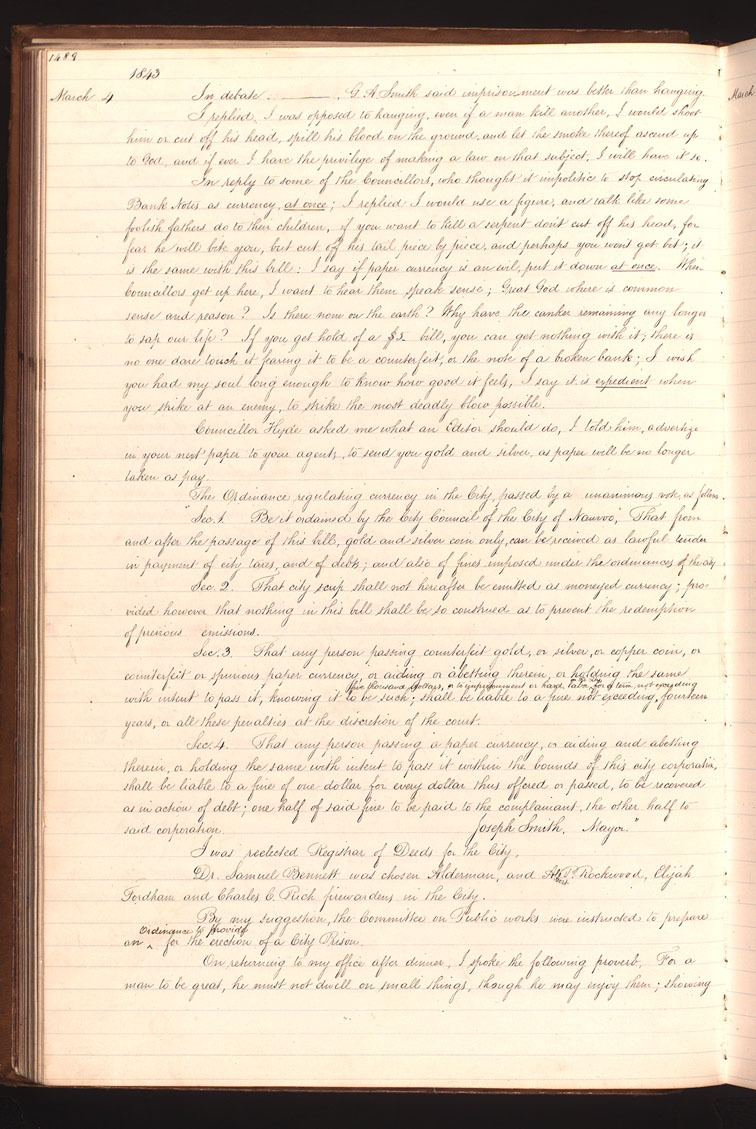 1489
1843
March 4 In debate ———, G. A. Smith said imprisonment was better than hanging.
I replied, I was opposed to hanging, even if a man kill another, I would shoot
him or cut off his head, spill his blood on the ground, and let the smoke thereof ascend up
to God, and if ever I have the privilege of making a law on that subject, I will have it so.
In reply to some of the Councillors, who thought it impolitic to stop circulating
Bank Notes as currency at once; I replied I would use a figure, and talk like some
foolish fathers do to their children, if you want to kill a serpent don't cut off his head, for
fear he will bite you, but cut off his tail piece by piece, and perhaps you wont get bit; it
is the same with this bill: I say if paper currency is an evil, put it down at once. When
Councillors get up here, I want to hear them speak sense; Great God where is common
sense and reason? Is there none on the earth? Why have the canker remaining any longer
to sap our life? If you get hold of a $5. bill, you can get nothing with it; there is
no one dare touch it fearing it to be a counterfeit, or the note of a broken bank; I wish
you had my soul long enough to know how good it feels, I say it is expedient when
you strike at an enemy, to strike the most deadly blow possible.
Councillor Hyde asked me what an Editor should do, I told him, advertize
in your next paper to your agents, to send you gold and silver, as paper will be no longer
taken as pay.
The Ordinance regulating currency in the City, passed by a unanimous vote, as follows
"Sec. 1. Be it ordained by the City Council of the City of Nauvoo, That from
and after the passage of this bill, gold and silver coin only, can be received as lawful tender
in payment of city taxes, and of debts; and also of fines imposed under the ordinances of the city
Sec. 2. That city scrip shall not hereafter be emitted as moneyed currency; pro-
vided however that nothing in this bill shall be so construed as to prevent the redemption
of previous emissions.
Sec. 3. That any person passing counterfeit gold, or silver, or copper coin, or
counterfeit or spurious paper currency, or aiding or abetting therein, or holding the same
five thousand dollars, or to imprisonment or hard labor for a term not exceeding
with intent to pass it, knowing it to be such; shall be liable to a fine not exceeding, fourteen
years, or all these penalties at the discretion of the court.
Sec. 4. That any person passing a paper currency, or aiding and abetting
therein, or holding the same with intent to pass it within the bounds of this city corporation,
shall be liable to a fine of one dollar for every dollar thus offered or passed, to be recovered
as in action of debt; one half of said fine to be paid to the complainant, the other half to
said corporation. Joseph Smith, Mayor."
I was reelected Registrar of Deeds for the City.
Dr. Samuel Bennett was chosen Alderman, and Rockwood, Elijah
Fordham and Charles C. Rich firewardens in the City.
By my suggestion, the Committee on Public works were instructed to prepare
Ordinance to provide
an ^ for the erection of a City Prison.
On returning to my office after dinner, I spoke the following proverb. For a
man to be great, he must not dwell on small things, though he may enjoy them; showing
March